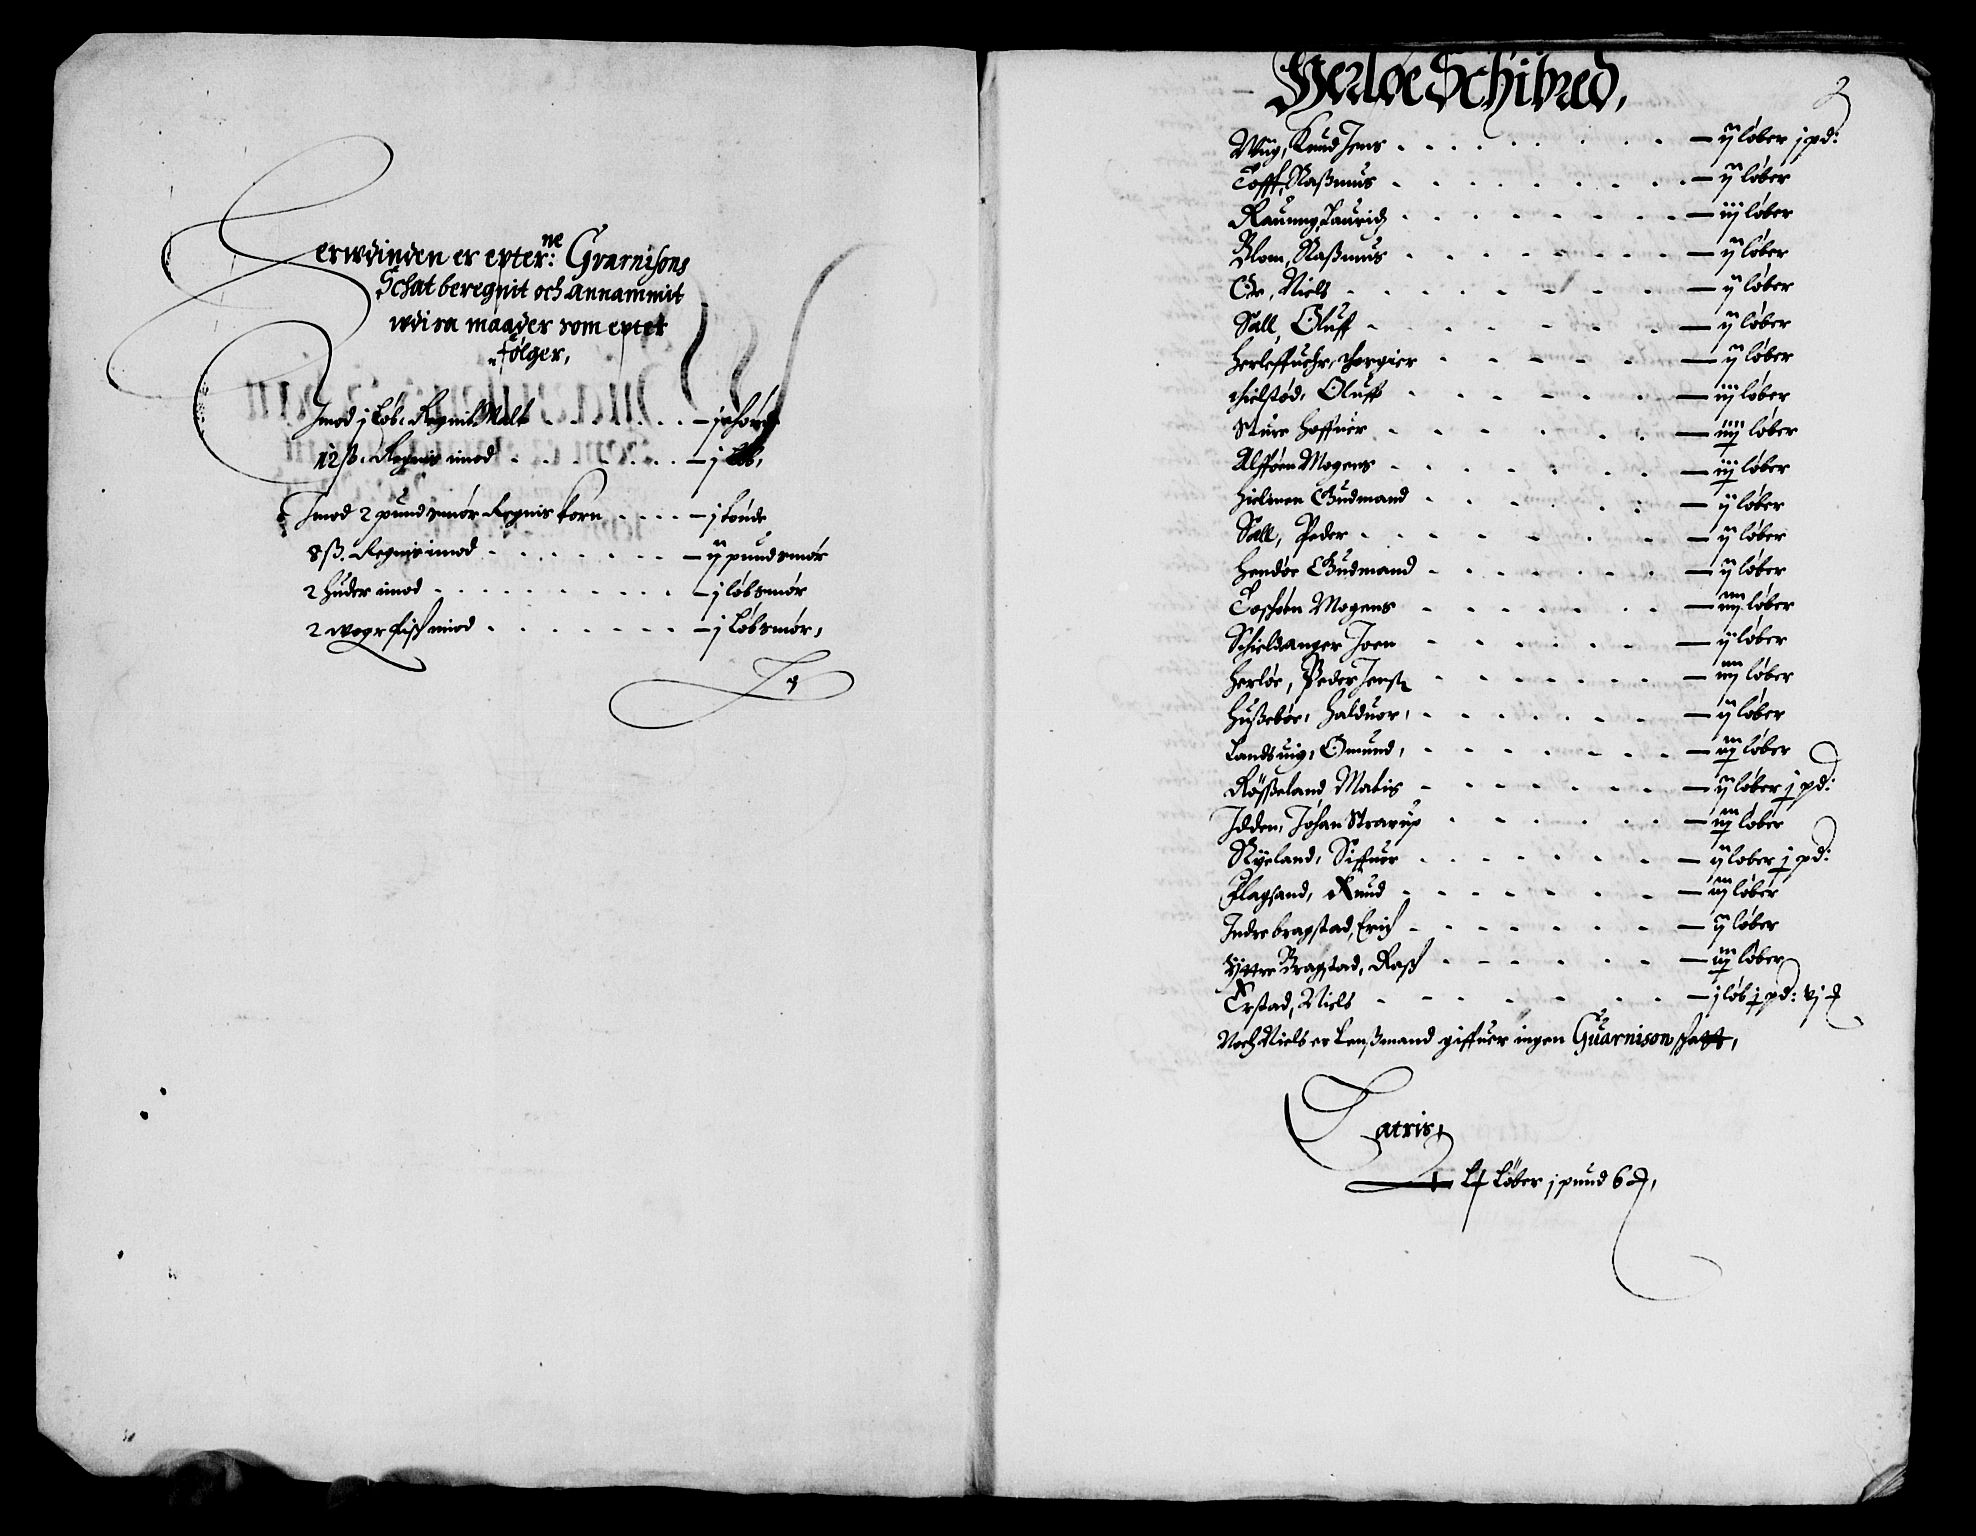 Herudinden er epter:ne Gvarnisons
Schat beregnit och Annammit
udi sa maader som epter
følger,
Imod j Løb. Regnis Malt - j
12 ß. Regnis imod - j Løb,
Imod 2 pund smør Regnis korn - j tønde
8 ß. Regnis imod - ij pund smør
2 huder imod - j løb smør
2 woger fisk imod - j Løb smør,
Herløe Schibred,
2
Wiig, Knud Jens - ij løber j pd:
Tofft, Raßmus - ij løber
Rauung, Lauridz - iij løber
Blom, Raßmus - ij løber
Oee, Niels - ij løber
Sall, Oluff - ij løber
Herleffuehr, Thorgier - ij løber
Thielstød, Oluff - iij løber
Sture Hoffuer - iiij løber
Alfføen Mogens - iij løber
Hielmen Gudmand - ij løber
Sall, Peder - ij løber
Hendøe Gudmand - ij løber
Toschøen Mogens - iij løber
Schieldanger Joen - ij løber
Herløe, Peder Jens - iij løber
Hußebøe, Halduor, - ij løber
Landsuig, Omund, - iij løber
Rößeland Matis - ij løber j pd:
Idden, Johan Strarup - iij løber
Ryeland, Siffuer - ij løber j pd:
Flagsand, Knud - iij løber
Indre bragstad, Erich - ij løber
Yttre Bragstad, Rasch - iij løber
Erstad, Niels - j løb j pd: vj
Noch Niels er Lenßmand giffuer ingen Guarnison schatt,
Latris,
Lxj Løber j pund 6